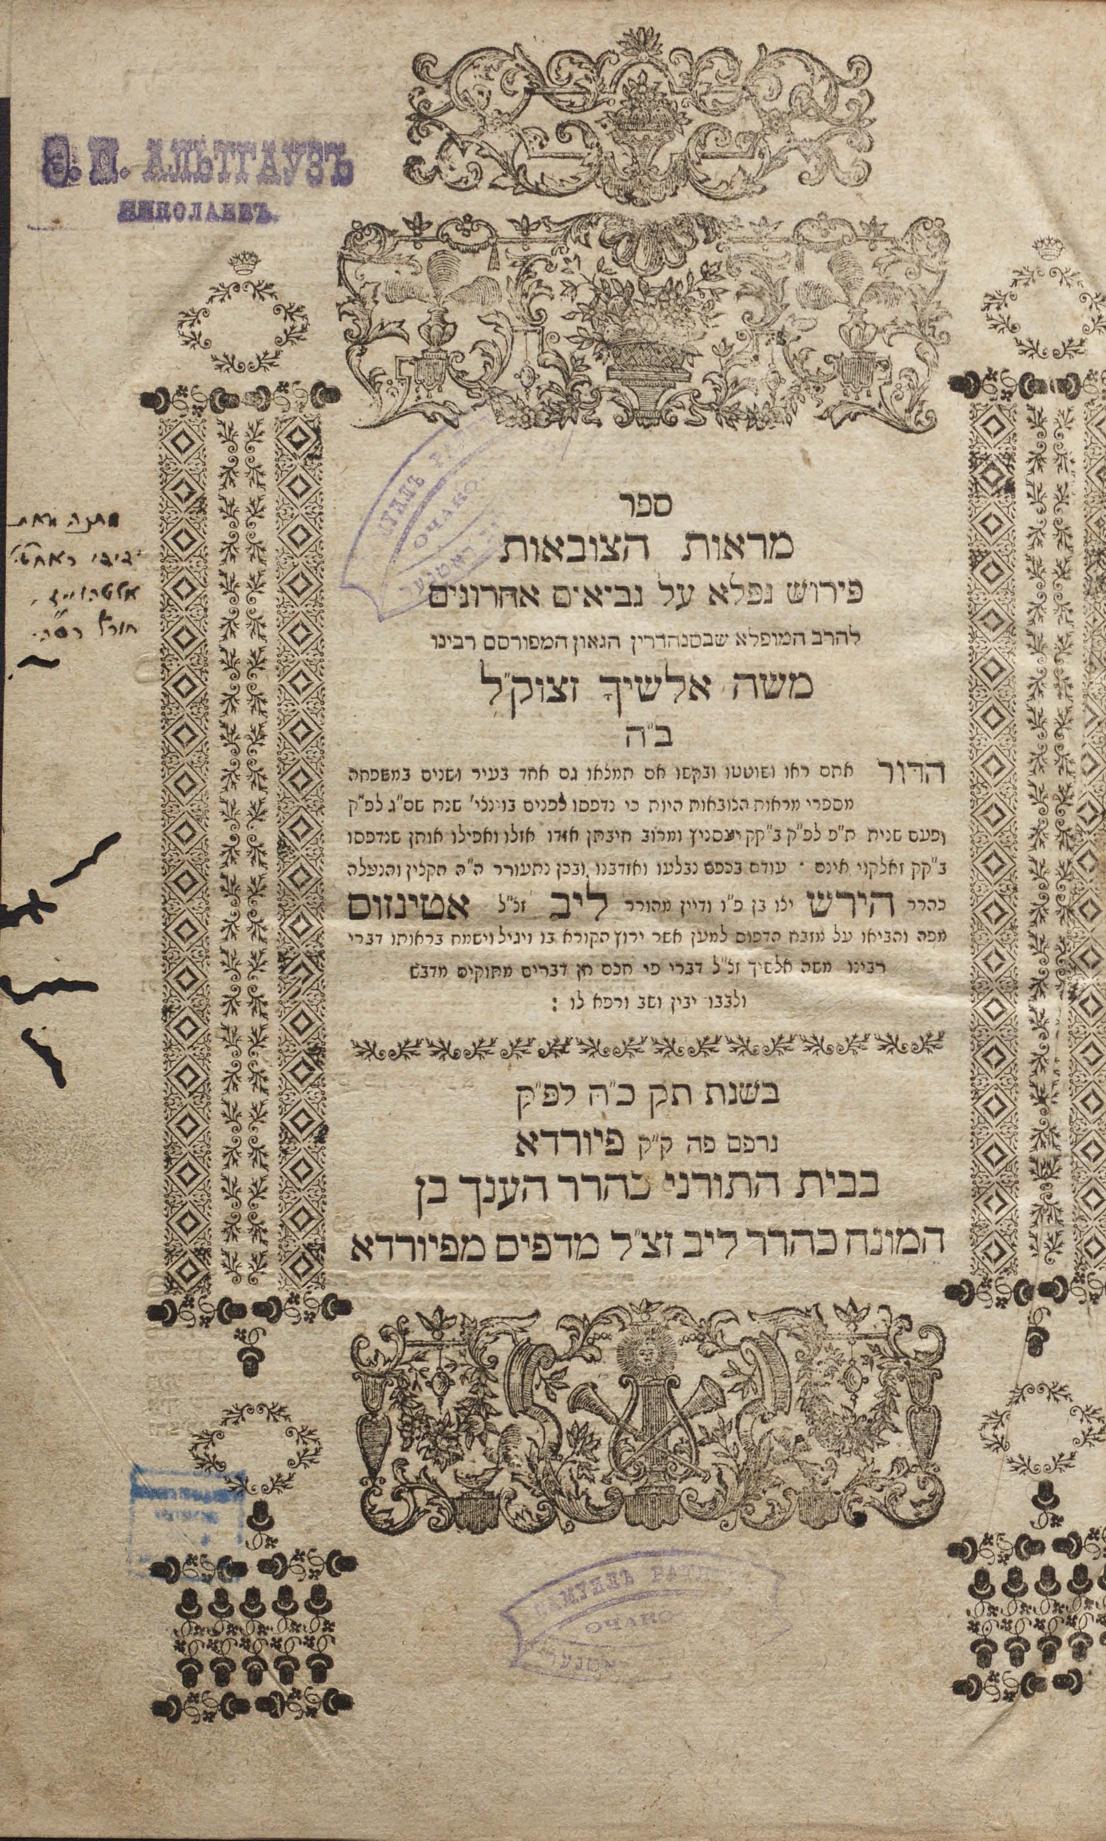 Э. П. АЛЬТГАУЗЪ
НИКОЛАЕВЪ.
ספר
מראות הצובאות
פירוש נפלא על נביאים אחרונים
להרב המופלא שבסנהדרין הגאון המפורסם רבינו
משה אלשיך זצוק״ל
ב״ה
הדור אתם ראו ושוטטו ובקשו אם תמלאו גם אחד בעיר ושנים במשפחה
מספרי מראות הצובאות היות כי נדפסו לפנים בוינגלי׳ שנת שס״ג לפ״ק
ופעם שנית ת״פ לפ״ק ב״קק יעסניץ ומרוב חיבתן אזדו אזלו ואפילו אותן שנדפסו
ב״קק זאלקוי אינם · עודם בכפם נבלעו ואזדבנו ובכן נתעורר ה״ה הקלין והנעלה
כהרר הירש ילו בן כ״ו ודיין מהורר ליב זל״ל אטינזום
מפה והביאו על מזבח הדפוס למען אשר ירוץ הקורא בו ויגיל וישמח בראותו דברי
רבינו משה אלשיך זל״ל דברי פי חכם חן דברים מתוקים מדבש
ולבבו יבין ושב ורפא לו :
בשנת תק כ״ה לפ״ק
נדפס פה ק״ק פיורדא
בבית התורני כהרר הענך בן
המונח כהרר ליב זצ״ל מדפים מפיורדא
מתנה מאת
ידידי
САМУИЛЪ
ОЧАКО